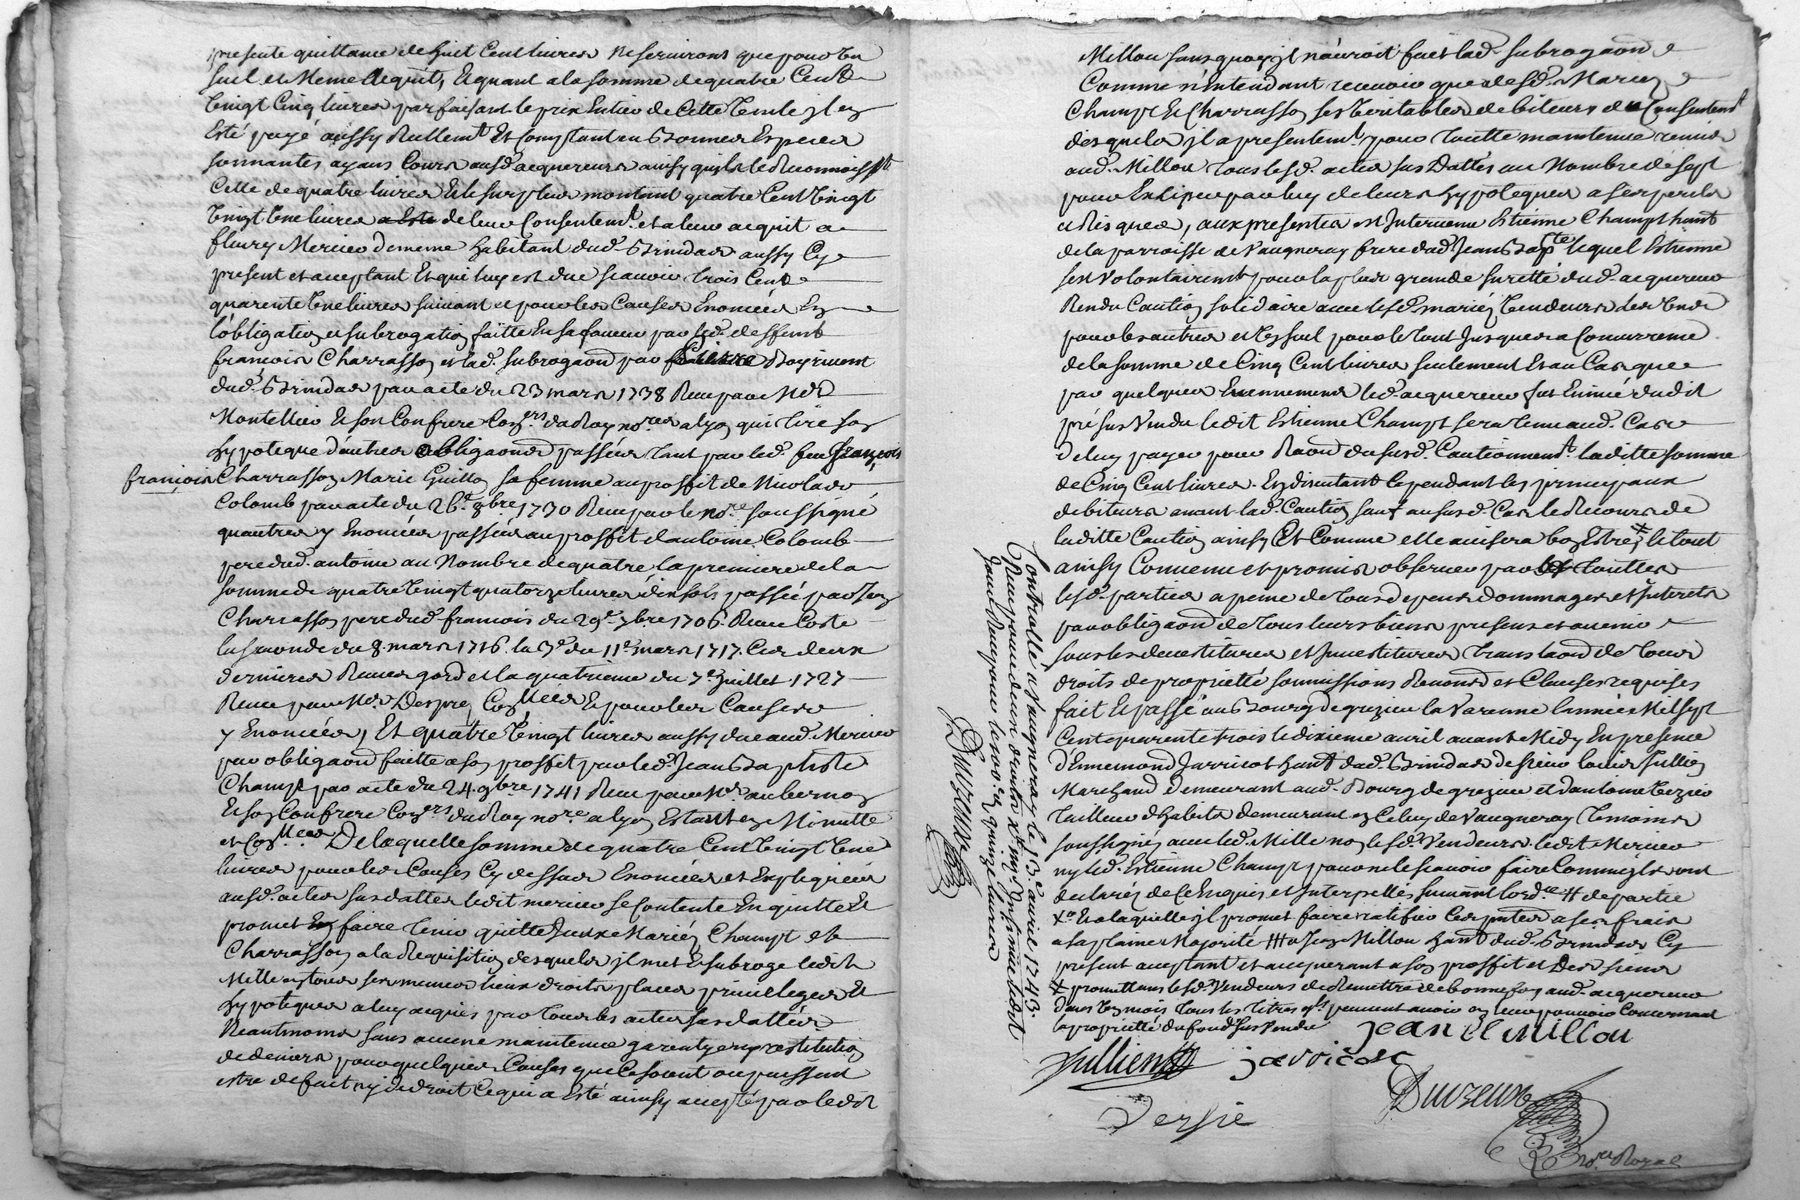 presente quittance de huit Cent livres ne serviront que pour un
seul et meme acquit, Et quant a la somme de quatre Cent
vingt Cinq livres parfaisant le prix Entier de cette vente il a
Esté payé aussy Reellemt Et Comptant en bonnes Especes
sonnantes ayans Cours ausd. acquereurs ainsy qu'ils le Reconnoisst
Celle de quatre livres Et le surplus montant quatre Cent vingt
vingt une livres a Esté de leur Consentemt. et a leur acquit a
fleury Mercier de meme habitant dud. Brindas aussy Cy
present et acceptant Et qui luy est due scavoir trois Cent
quarente une livres suivant et pour les Causes Enoncées En
l'obligation et subrogation faitte En sa faveur par led. deffunt
françois Charrasson et lad. subrogaon par Raymont
dud. Brindas par acte du 23 mars 1738 Receu par Me
Montellier Et son Confrere Coners. du Roy nores a lyon qui tire son
hypoteque d'autres obligaons passées tant par led. feu françois
françois Charrasson Marie Guillon sa femme au proffit de Nicolas
Colomb par acte du 26e. 8bre. 1730 Receu par le nore. soussigné
qu'autres y Enoncées passées au proffit d'antoine Colomb
pere dud. antoine au Nombre de quatre la premiere de la
somme de quatre vingt quatorze livres dix sols passée par Jean
Charrasson pere dud. francois du 29e. 7bre 1706. Receu Coste
la seconde du 8 mars 1716. la 3e du 11e mars 1717. Ces deux
dernieres Receues gord et la quatrieme du 7e Juillet 1727
Receu par Me. Desprez et pour les Causes
y Enoncées, Et quatre vingt livres aussy due aud. Mercier
par obligaon faitte a son proffit par led. Jean Baptiste
Champt par acte du 24. 9bre. 1741 Receu par Me. aubernon
Et son Confrere Coners du Roy nores a lyon Estant En Minutte
et De laquelle somme de quatre Cent vingt une
livres pour les Causes Cy dessus Enoncées et Expliquées
ausd. actes sus dattes ledit mercier se Contente En quitte Et
promet En faire tenir quitte Jceux Mariés Champt et
Charrasson a la Requisition desquels il met Et subroge ledit
Millou En tous ses memes lieux droits places privileges Et
hypoteques a luy acquis par tous les actes sus dattés
Neantmoins sans aucune maintenue garentye ny restitution
de deniers pour quelques Causes que Ce soient ou puissent
estre de fait ny de droit Ce qui a Esté ainsy accepté par ledit
Millou sans quoy il n'auroit fait lad. subrogaon
Comme n'entendant recevoir que desd. Mariez
Champt Et Charrasson ses veritables debiteurs du Consentemt
desquels il a presentemt. pour toutte maintenue remis
aud. Millou tous lesd. actes sus Dattés au Nombre de sept
pour En Exiper par luy de leurs hypoteques a ses perils
et Risques, aux presentes est Intervenu Estienne Champt hant
de la parroisse de Vaugneray frere dud. Jean Bapte. lequel Estienne
s'est volontairemt pour la plus grande suretté dud. acquereur
Rendu Caution solidaire avec lesd. mariés vendeurs Les uns
pour les autres et un seul pour le tout Jusques a Concurrence
de la somme de Cinq Cent livres seulement Et au Cas que
par quelques Evennements led. acquereur fut Evincé dudit
présus vendu ledit Estienne Champt sera tenu aud. Cas
de luy payer pour Raon du susd. Cautionnemt. laditte somme
de Cinq Cent livres. En discutant cependant les principaux
debiteurs avant lad. Caution sauf au susd. Cas le Recours de
laditte Caution ainsy Et Comme elle avisera bon Estre # le tout
ainsy Convenu et promis observer par touttes
lesd. parties a peine de tous depens dommages et Interets
par obligaon de tous leurs biens presens et avenir
sous les devestitures et Jnvestitures translaon de tous
droits de proprietté soumissions Renons et Clauses requises
fait Et passé au Bourg de grezieu la Varenne l'année Mil sept
Cent quarente trois le dixieme avril avant Midy En presence
d'Ennemond Jarricot hant dud. Brindas de sieur louis Jullien
Marchand demeurant aud. Bourg de grezieu et d'antoine
Tailleur d'habits demeurant En Celuy de Vaugneray Temoins
soussignés avec led. Millou non lesd. Vendeurs ledit Mercier
ny led. Estienne Champt pour ne le scavoir faire Comme ils ont
declarés de Ce Enquis et Interpellés suivant l'ordce. # de partie
Xr Et a laquelle il promet faire ratiffier Ces pntes a ses frais
a sa plaine Majorité # a Jean Millou hant dud. Brindas Cy
present acceptant et acquerant a son proffit et Des siens
# promettans lesd. Vendeurs de Remettre de bonne foy aud. acquereur
dans un mois tous les titres qls peuvent avoir En leur pouvoir Concernant
la proprietté du fond sus vendu
Jean Millou
Jullien Jarricot
Duvzeux
Versie
nre. Royal
Controllé a Vaugneray le 13e. avril 1743.
Duvzeux